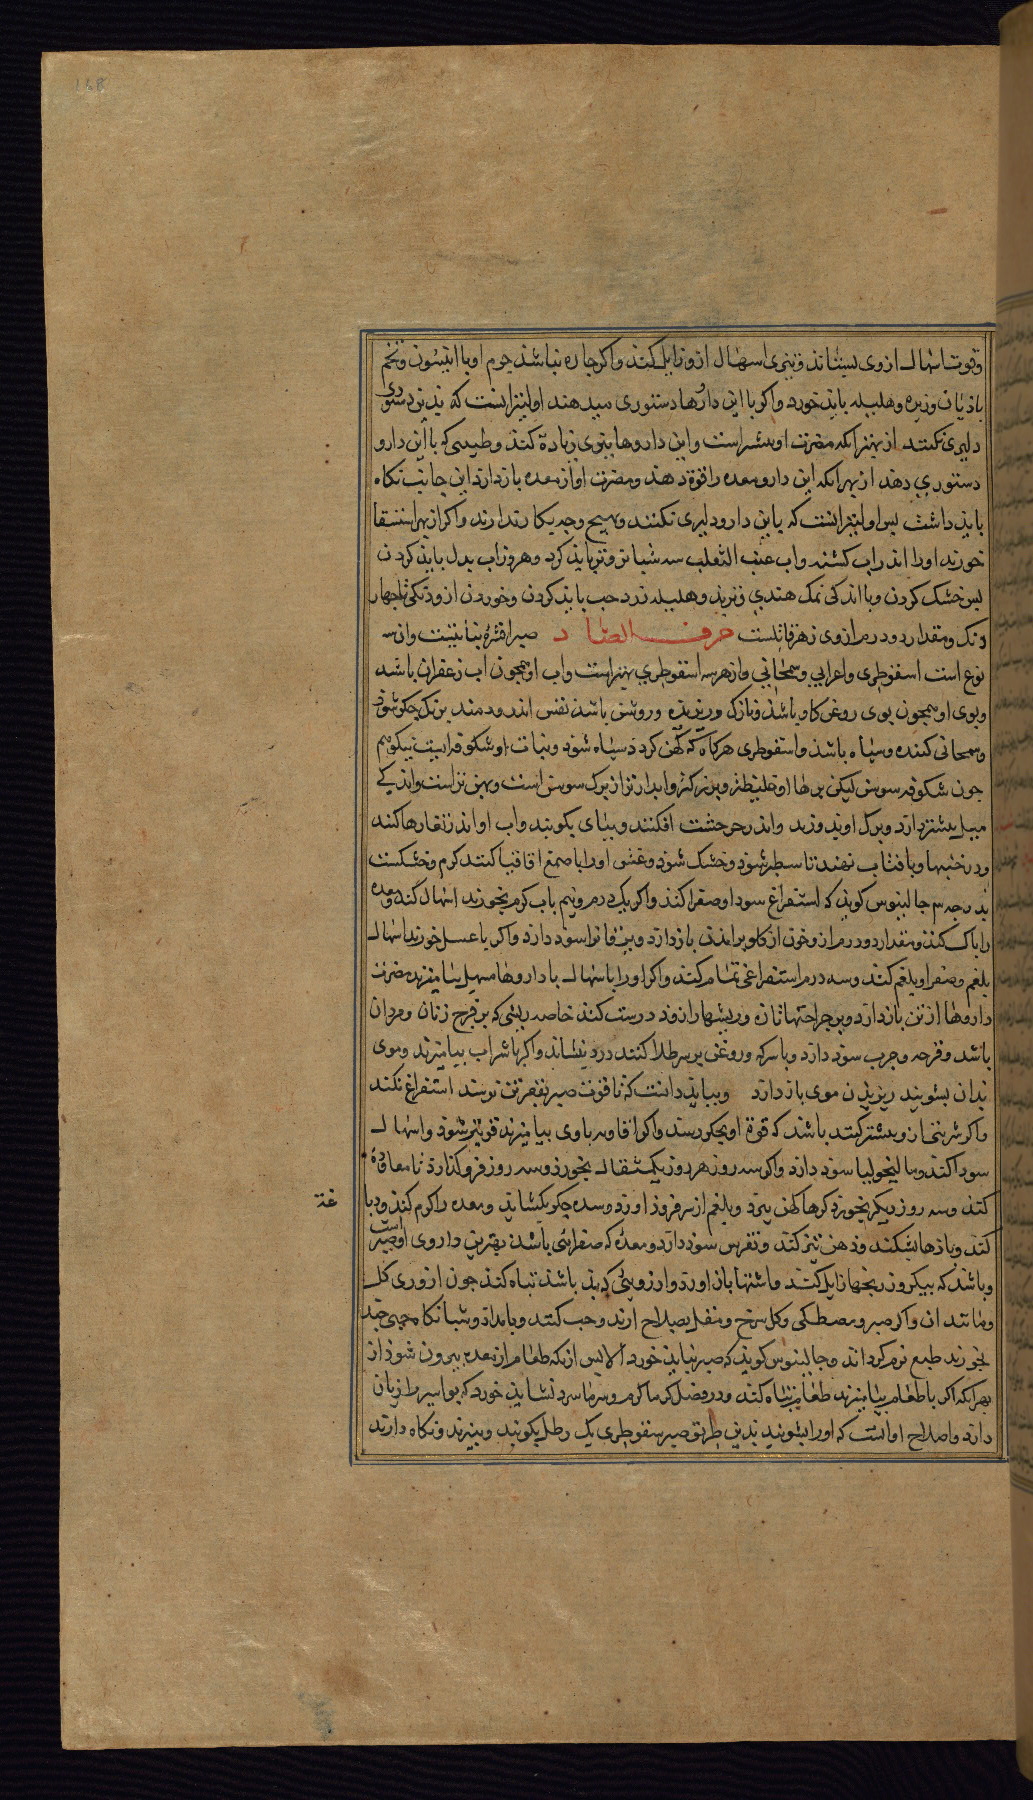 168
وقوت اسهال از وی بستاند و تیزی اسهال ازو زایل کند و اکر چاره نباشد جرم او با انیسون و تخم
باذیان و زیره و هلیله باید خورد و اکر با این داروها دستوری میدهند اولیتر انست که بذین دستوری
دلیری نکنند از بهر انکه مضرت او بیشتر است و این داروها بتوی زیادة کند و طبیبی که با این دارو
دستوری دهد از بهر انکه این دارو معده را قوة دهد و مضرت او از معده باز دارد این جانب نکاه
باید داشت بس اولیتر انست که باین دارو دلیری نکنند و بهیچ وجه بکار ندارند و اکر از بهر استسقا
خورند اورا اندر اب کشنه و اب عنب الثعلب سه شبانروز تر باید کرد و هر روز اب بدل باید کردن
بس خشک کردن و با اندکی نمک هندی و تربد و هلیله زرد حب باید کردن و خوردن ازو دنکی تا چهار
دنک و مقدار دو درم ازوی زهر قاتلست حرف الصاد صبر افشره نباتیست و ان سه
نوع است اسقوطری و اعرابی و سمحانی و از هر سه اسقوطری بهتر است و اب او همچون اب زعفران باشد
و بوی او همچون بوی روغن کاو باشد و نازک و ریزیده و روشن باشد نفس اندرو دمند برنک جکر شود
و سمحانی کنده و سیاه باشد و اسقوطری هرکاه که کهن کردد سیاه شود و نبات او شکوفه ایست نیکو هم
جون شکوفه سوسن لیکن برکها او غلیظتر و بزرکتر و ابدارتر از برک سوسن است و بهن تر است و اندکی
میل بیشتر دارد و برک او بدروند و اندر چرخشت افکنند و بیای بکوبند و اب او اندر تغارها کنند
و درخنبها و بافتاب نهند تا سطبر شود و خشک شود و غش اورا با صمغ اقاقیا کنند کرم و خشکست
بدرجه سم جالینوس کوید که استفراغ سودا و صفرا کند و اکر یک درم و نیم باب کرم بخورند اسهال کند و معده
را باک کند و مقدار دو درم ازو خون از کلو برامدن باز دارد و یرقان را سود دارد و اکر با عسل خورند اسهال
بلغم و صفرا و بلغم کند و سه درم استفراغی تمام کند و اکر اورا باسهال با داروها مسهل بیامیزند مضرت
داروها از تن باز دارد و بر جراحتها تازه و ریشها را زود درست کند خاصه ریشی که بر فرج زنان و مردان
باشد و قرحه و جرب سود دارد و با سرکه و روغن بر سر طلا کنند درد بنشاند و اکر با شراب بیامیزند و موی
بدان بشویند ریزیدن موی باز دارد و بباید دانست که تا قوت صبر بقعر تن نرسد استفراغ نکند
و اکر شربتها زو بیشتر کنند باشد که قوة او بجکر رسد و اکر افاویه با وی بیامیزند قوی تر شود و اسهال
سودا کند و مالیخولیا سود دارد و اکر سه روز هر روز یکمثقال بخورد و سه روز فرو کذارد تا معاوده
کند و سه روز دیکر بخورد کرمها کهن ببرد و بلغم از سر فروذ اورد و سده جکر بکشاید و معده را کرم کند و دباغة
کند و بادها بشکند و ذهن تیز کند و نقرس سود دارد و معدهٔ که صفرایی باشد بهترین داروی او صبر است
و باشد که بیک روز رنجها زایل کند و اشتها باز اورد و ارزویی که بد باشد تباه کند جون ارزوری کل
و مانند ان و اکر صبر و مصطکی و کل سرخ و مقل بصلاح ارند و حب کنند و بامداد و شبانکاه حبی چند
بخورند طبع نرم کرداند و جالینوس کوید که صبر نباید خورد الا بس ازانکه طعام از معده بیرون شود از
بهر انکه اکر با طعام بیامیزند طعام تباه کند و در فصل کرما کرم و سرما سرد نشاید خورد که بواسیر را زیان
دارد و اصلاح او انست که اورا بشویند بدین طریق صبر سقوطری یک رطل بکوبند و ببیزند و نکاه دارند